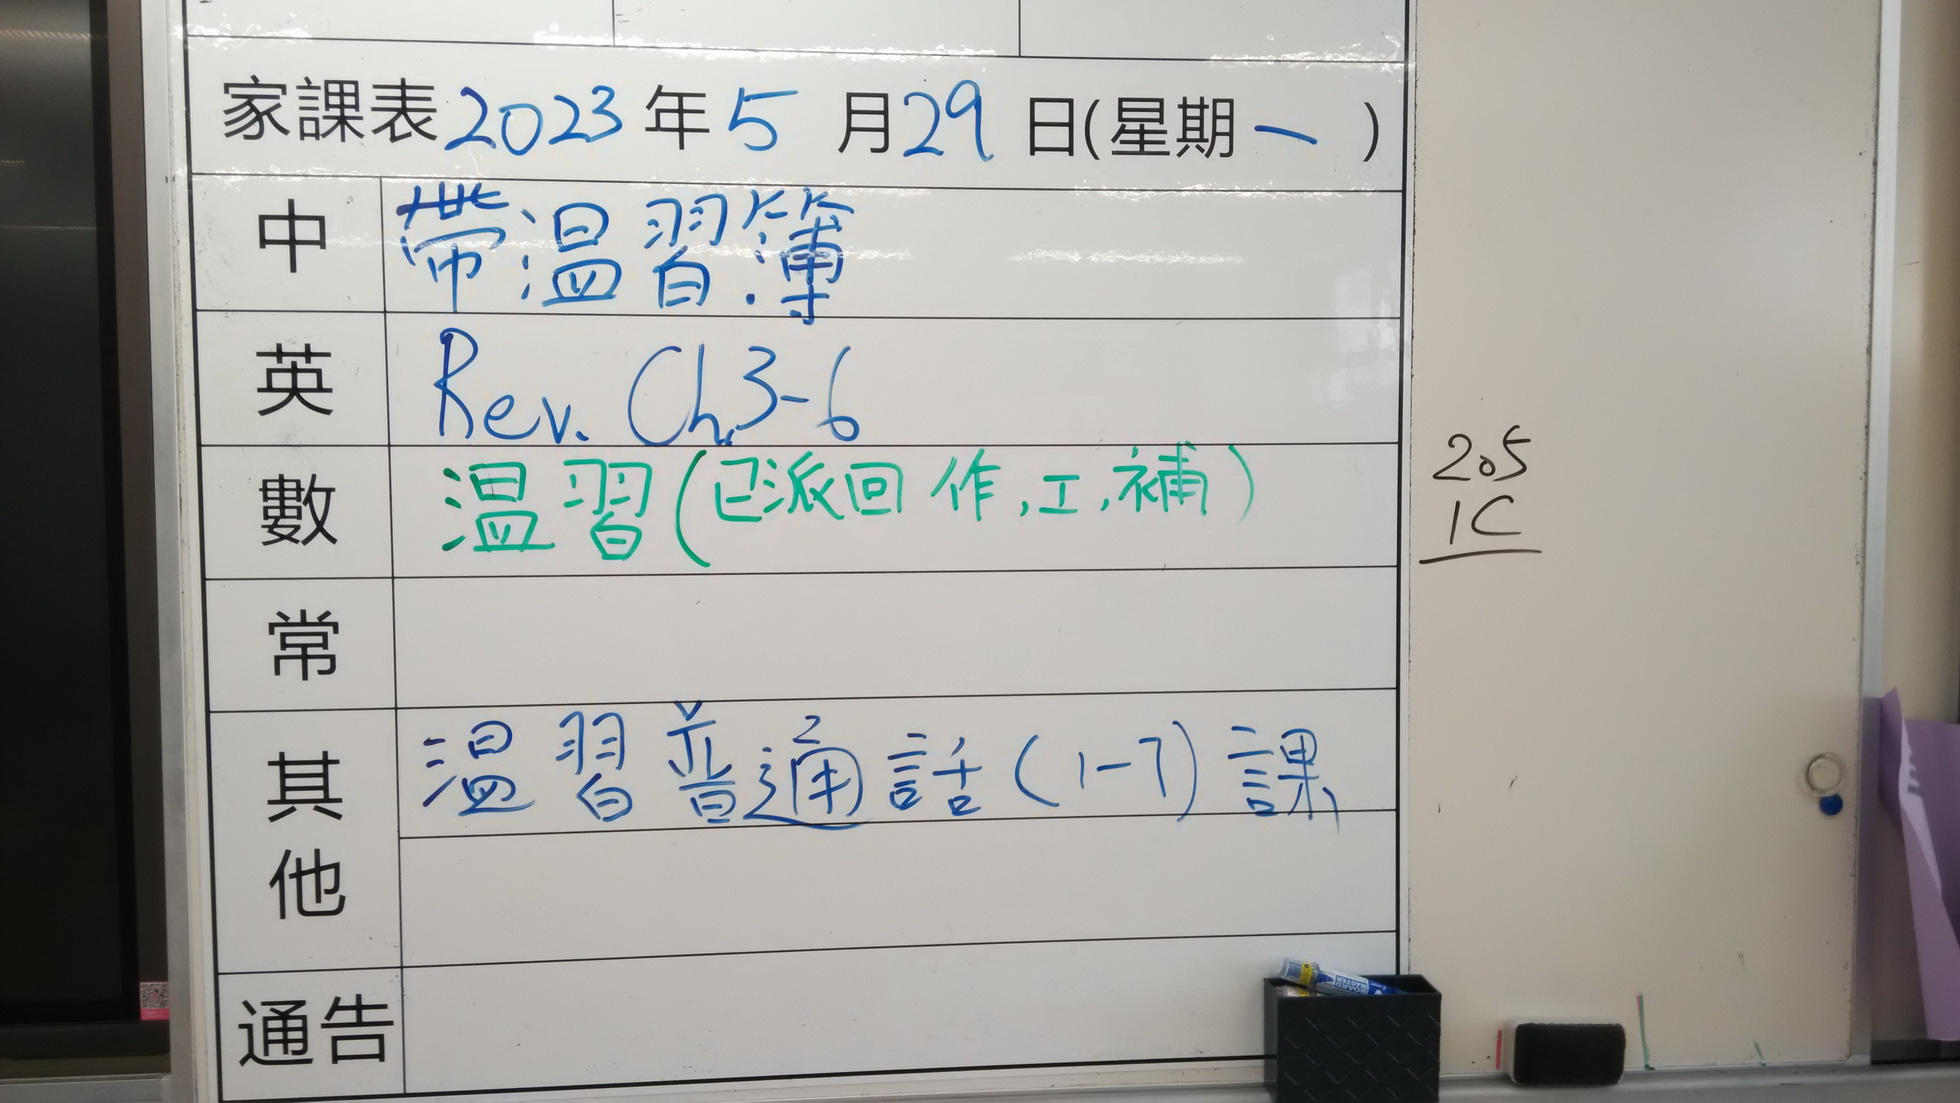 家課表 2023 年 5 月 29 日(星期 一 )
中 帶温習簿
英 Rev. Ch.3-6
數 温習(已派回 作,工,補)
205
1C
常
其他 温習普通話(1-7)課
通告